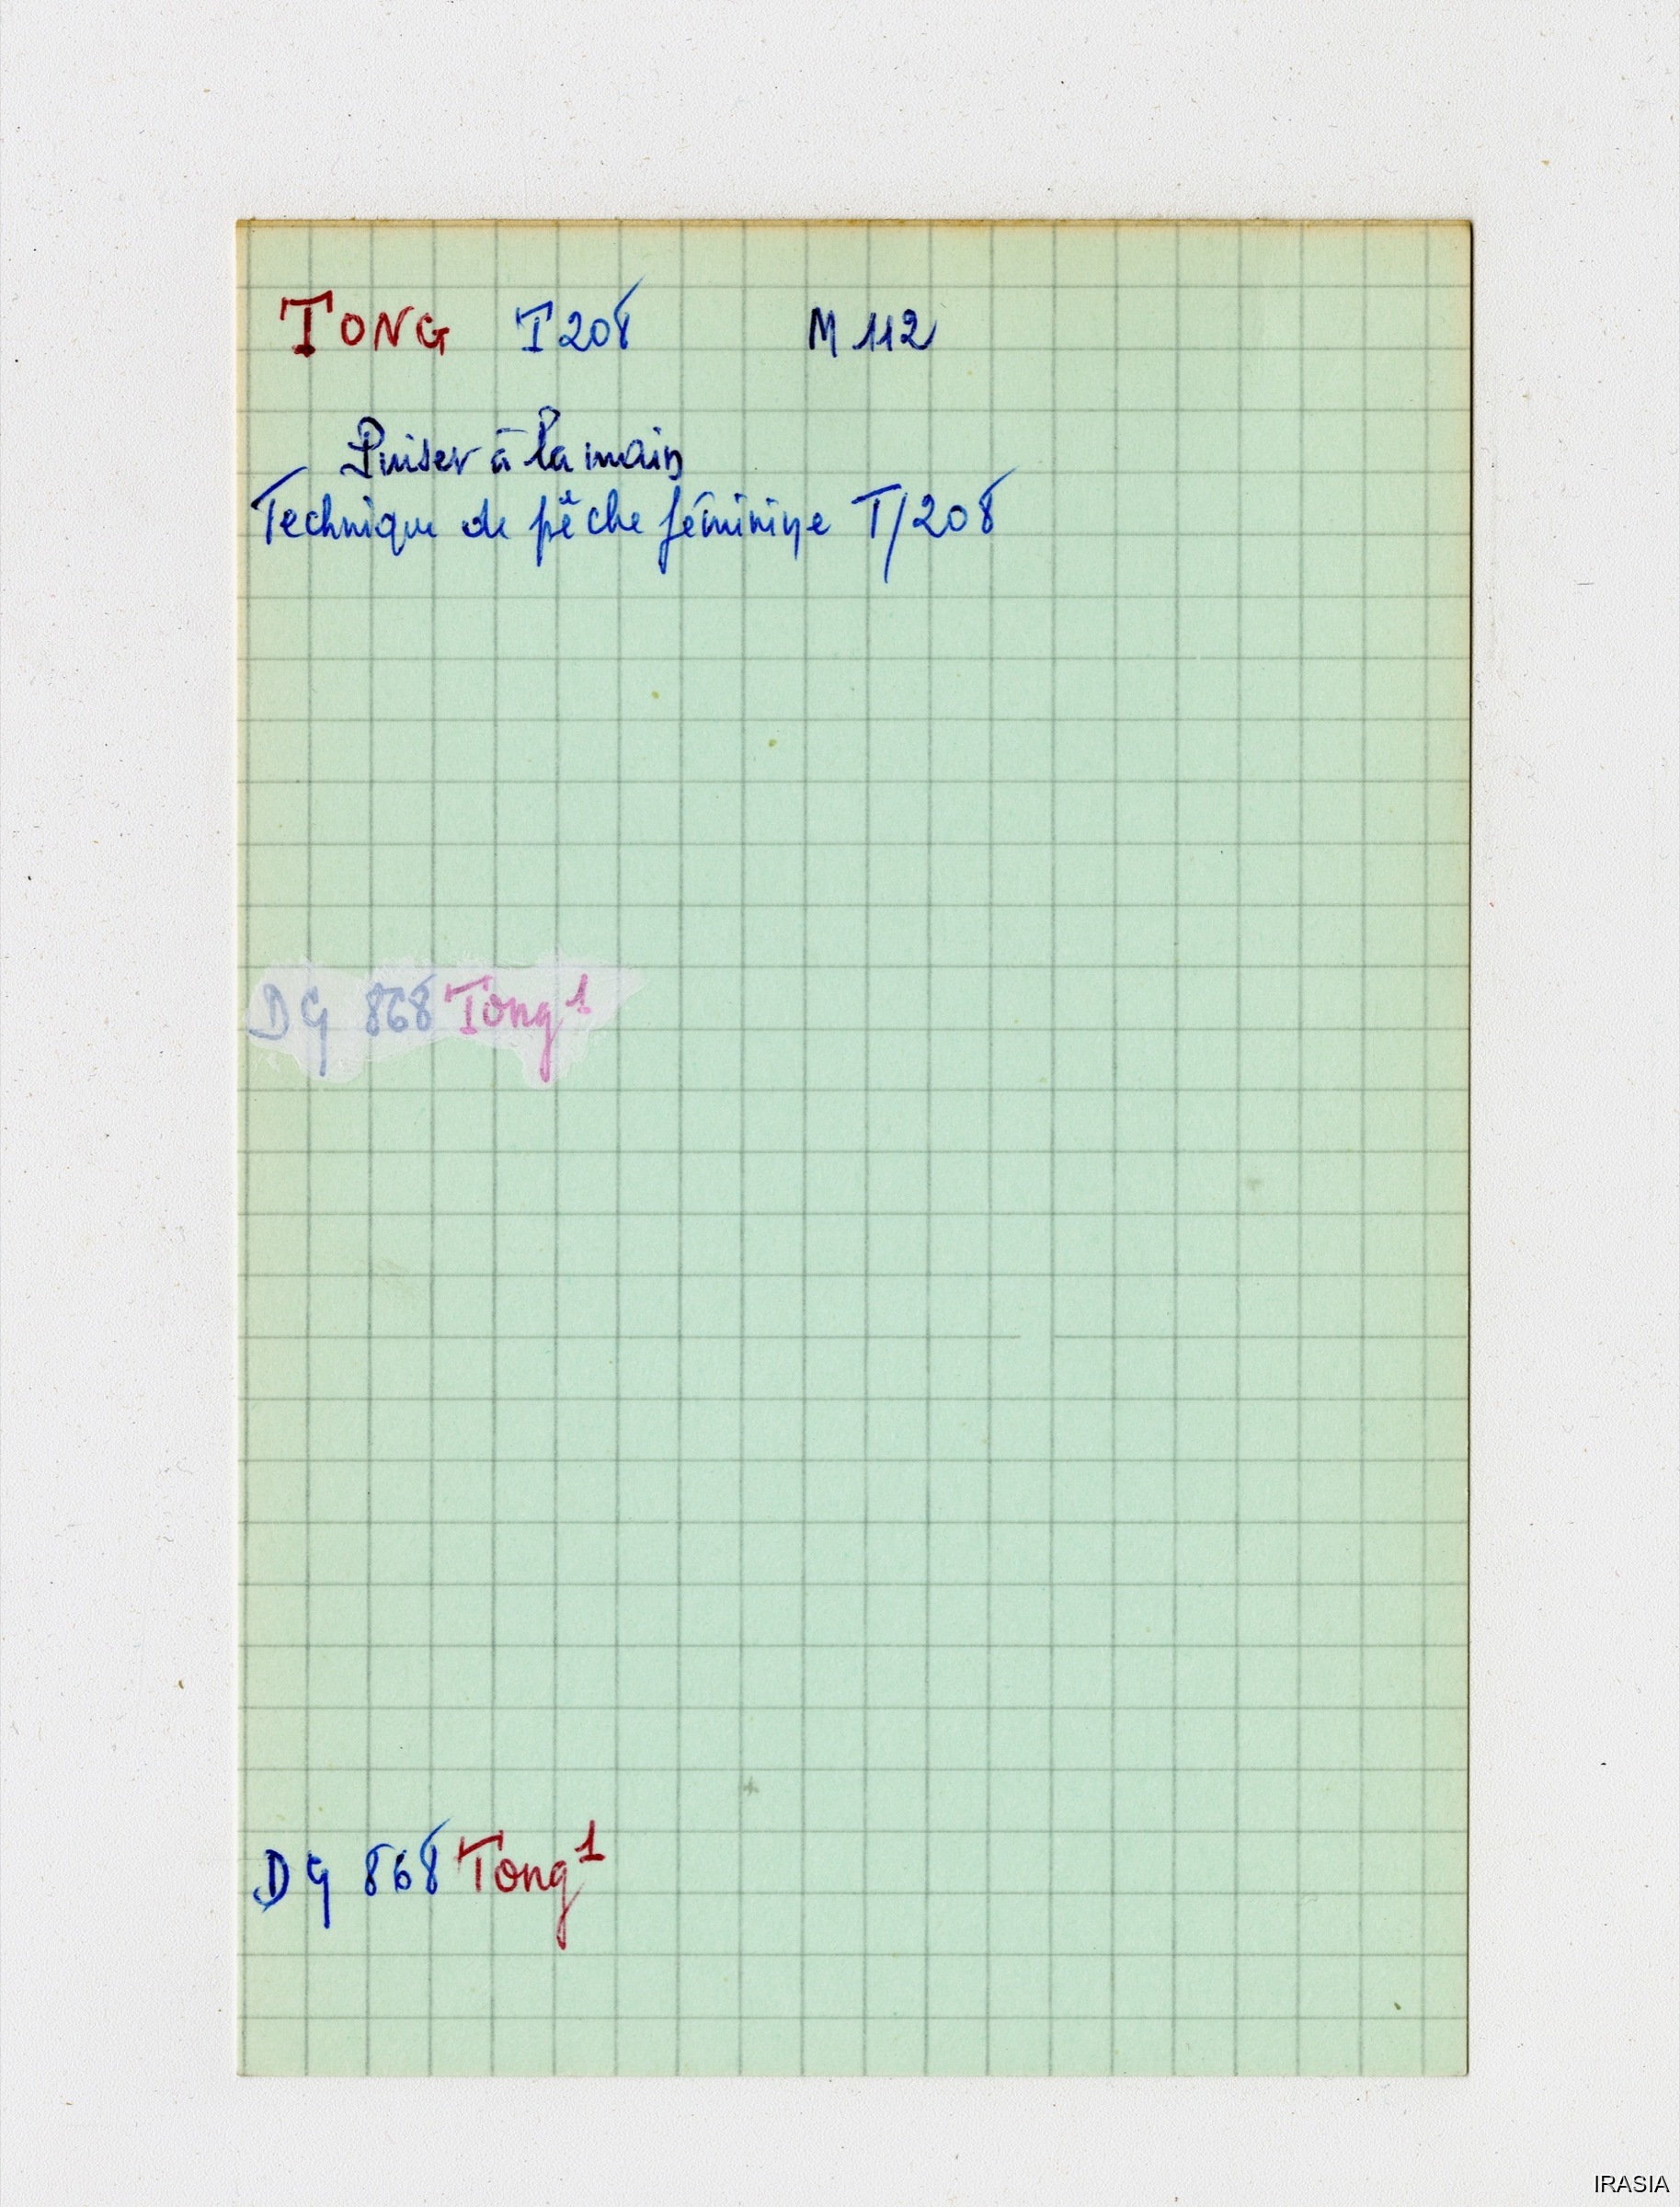 TONG T208 M 112
Puiser à la main
Technique de pêche féminine T/208
DG 868 Tong 1
DG 868 Tong 1
IRASIA